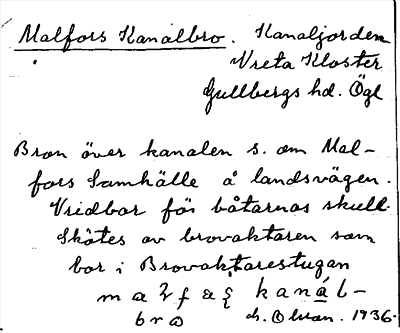 Malfors Kanalbro. Kanaljorden
Vreta Kloster
Gullbergs hd. Ögl
Bron över kanalen s. om Mal-
fors Samhälle å landsvägen.
Vridbar för båtarnas skull.
Skötes av brovaktaren som
bor i Brovaktarestugan
kanál-
bro 1936.